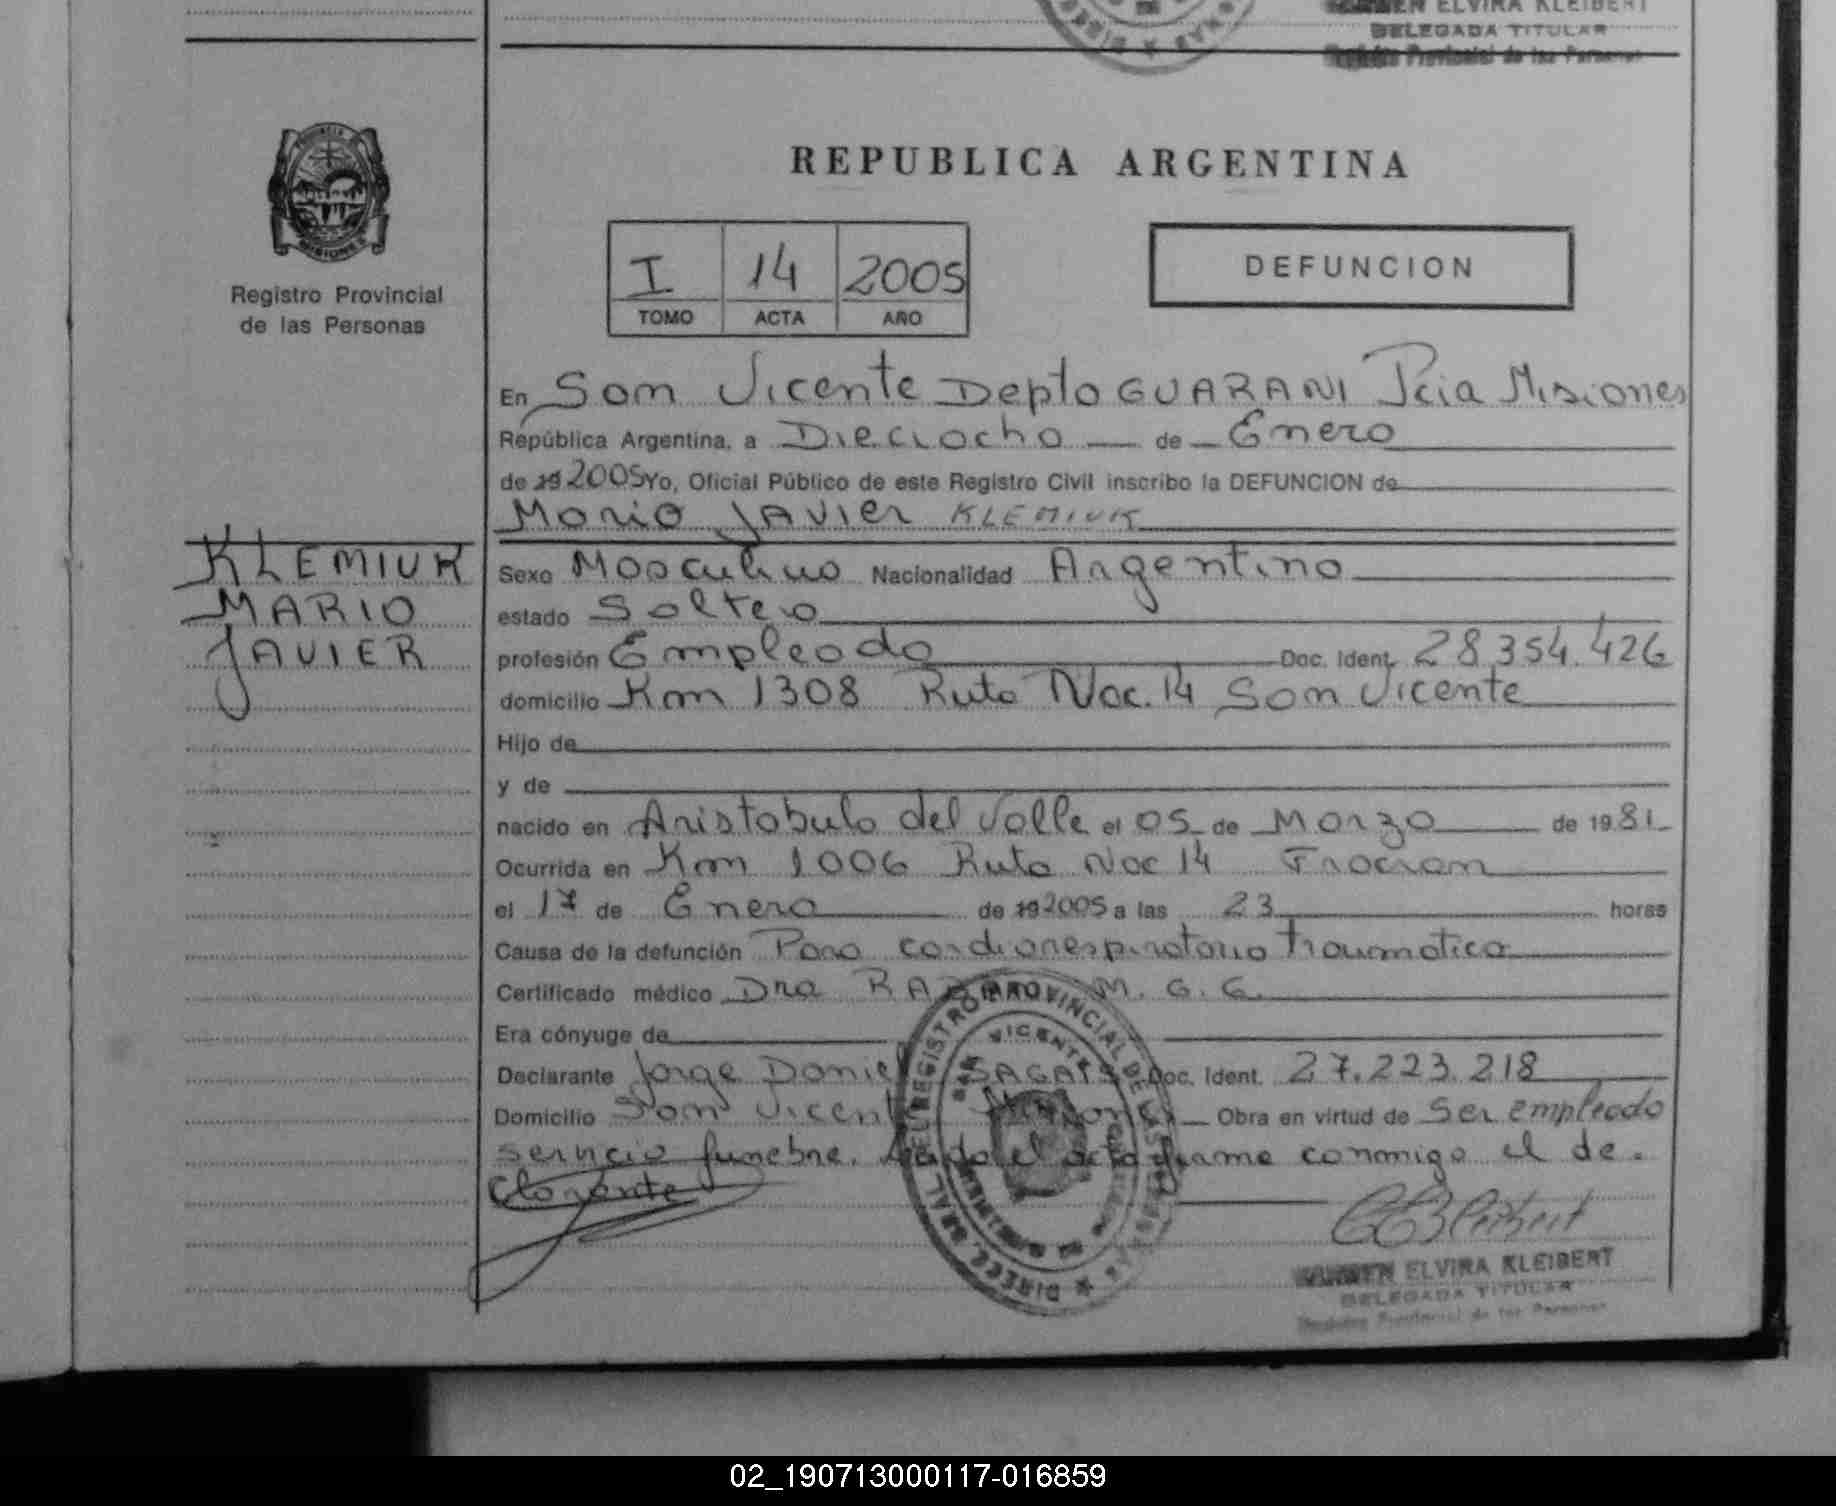 ELVIRA KLEIBERT
DELEGADA TITULAR
Registro Provincial de las Personas
REPUBLICA ARGENTINA
PROVINCIA
MISIONES
Registro Provincial
de las Personas
I 14 2005
TOMO ACTA AÑO
DEFUNCION
En San Vicente Depto GUARANI Pcia Misiones
República Argentina, a Dieciocho de Enero
de 19 2005 Yo, Oficial Público de este Registro Civil inscribo la DEFUNCION de
Mario Javier KLEMIUK
KLEMIUK
MARIO
JAVIER
Sexo Masculino Nacionalidad Argentino
estado Soltero
profesión Empleado Doc. Ident. 28.354.426
domicilio Km 1308 Ruta Nac. 14 San Vicente
Hijo de
y de
nacido en Aristobulo del Valle el 05 de Marzo de 1981
Ocurrida en Km 1006 Ruta Nac 14 Fracran
el 17 de Enero de 19 2005 a las 23 horas
Causa de la defunción Paro cardiorespiratorio traumatico
Certificado médico Dra M. G. G.
Era cónyuge de
Declarante Jorge Daniel Doc. Ident. 27.223.218
Domicilio San Vicente Misiones Obra en virtud de ser empleado
servicio funebre. Leida el acta firma conmigo el de-
clarante
DIRECC. GRAL DEL REGISTRO PROVINCIAL DE LAS PERSONAS
SAN VICENTE
ELVIRA KLEIBERT
DELEGADA TITULAR
Registro Provincial de las Personas
02_190713000117-016859